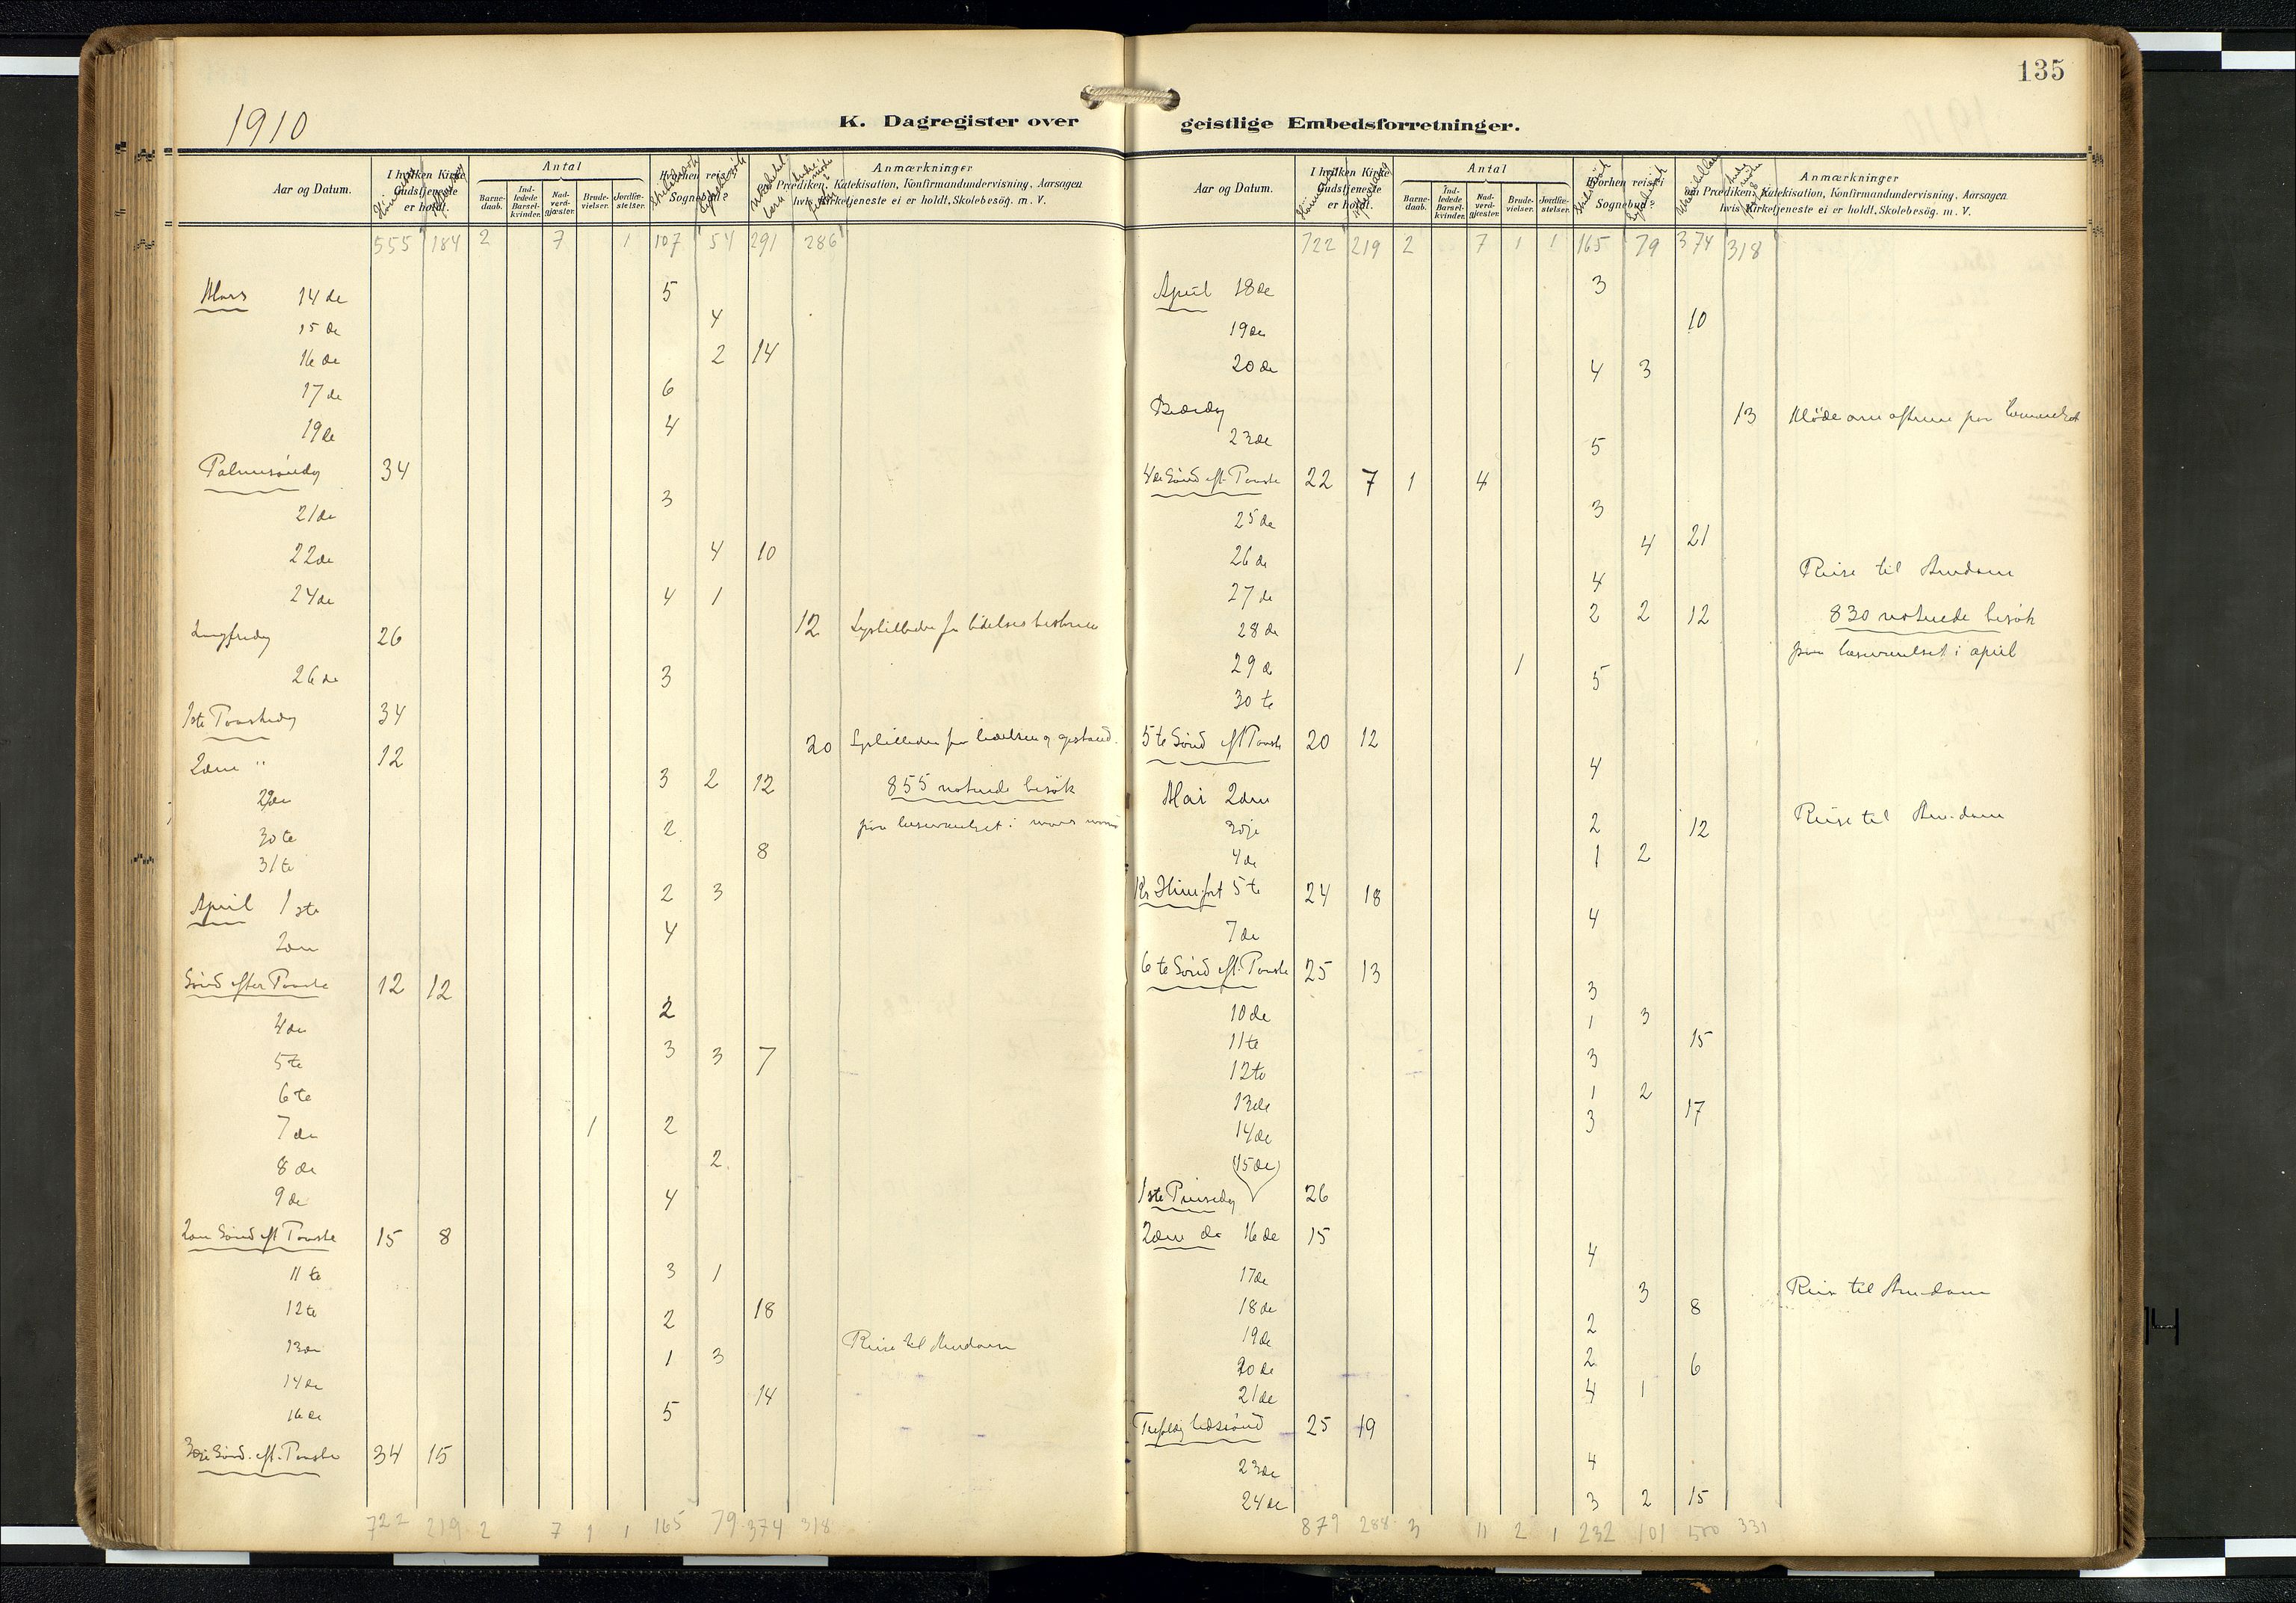 135
1910
K. Dagregister over geistlige Embedsforretninger.
Aar og Datum. I hvilken Kirke Gudstjeneste er holdt. Antal Barne-daab. Ind-ledede Barsel-kvinder. Nad-verd-gjæster. Brude-vielser. Jordfæ-stelser. Hvorhen reist i Sognebud? Anmærkninger
om Prædiken, Katekisation, Konfirmandundervisning, Aarsagen
hvis Kirketjeneste ei er holdt, Skolebesög. m. V.
555 184 2 7 1 107 54 291 286
Mars 14de 5
15de 4
16de 2 14
17de 6
19de 4
Palmesöndag 34
21de 3
22de 4 10
24de 4 1
Langfredag 26 12
26de 3
1ste Paaskedag 34
2den " 12 20
29de 3 2 12 855 noterede besök
30te 2 paa læseværelset i mars
31te 8
April 1ste 2 3
2den 4
Sönd efter Paaske 12 12
4de 2
5te 3 3 7
6te
7de 1 2
8de 2
9de 4
2den Sönd eft Paaske 15 8
11te 3 1
12te 2 18
13de 1 3 Reise til
14de 14
16de 5
3dje Sönd. eft. Paaske 34 15
722 219 2 7 1 1 165 79 374 318
Aar og Datum. I hvilken Kirke Gudstjeneste er holdt. Antal Barne-daab. Ind-ledede Barsel-kvinder. Nad-verd-gjæster. Brude-vielser. Jordfæ-stelser. Hvorhen reist i Sognebud? Anmærkninger
om Prædiken, Katekisation, Konfirmandundervisning, Aarsagen
hvis Kirketjeneste ei er holdt, Skolebesög. m. V.
722 219 2 7 1 1 165 79 374 318
April 18de 3
19de 10
20de 4 3
Bededag 13 Möde om aftenen paa
23de 5
4de Sönd eft. Paaske 22 7 1 4
25de 3
26de 4 21
27de 4 Reise til
28de 2 2 12 830 noterede besök
29de 1 paa læseværelset i april
30te 5
5te Sönd eft Paaske 20 12
Mai 2den 4
3dje 2 12 Reise til
4de 1 2
Kr. Him.fart 5te 24 18
7de 4
6te Sönd eft. Paaske 25 13
10de 3
11te 1 3 15
12te 3
13de 1 2
14de 3 17
(15de)
1ste Pinsedag 26
2den do 16de 15
17de 4
18de 3 8 Reise til
19de 2
20de 2 6
21de 4 1
25 19
23de 4
24de 3 2 15
879 288 3 11 2 1 232 101 500 331